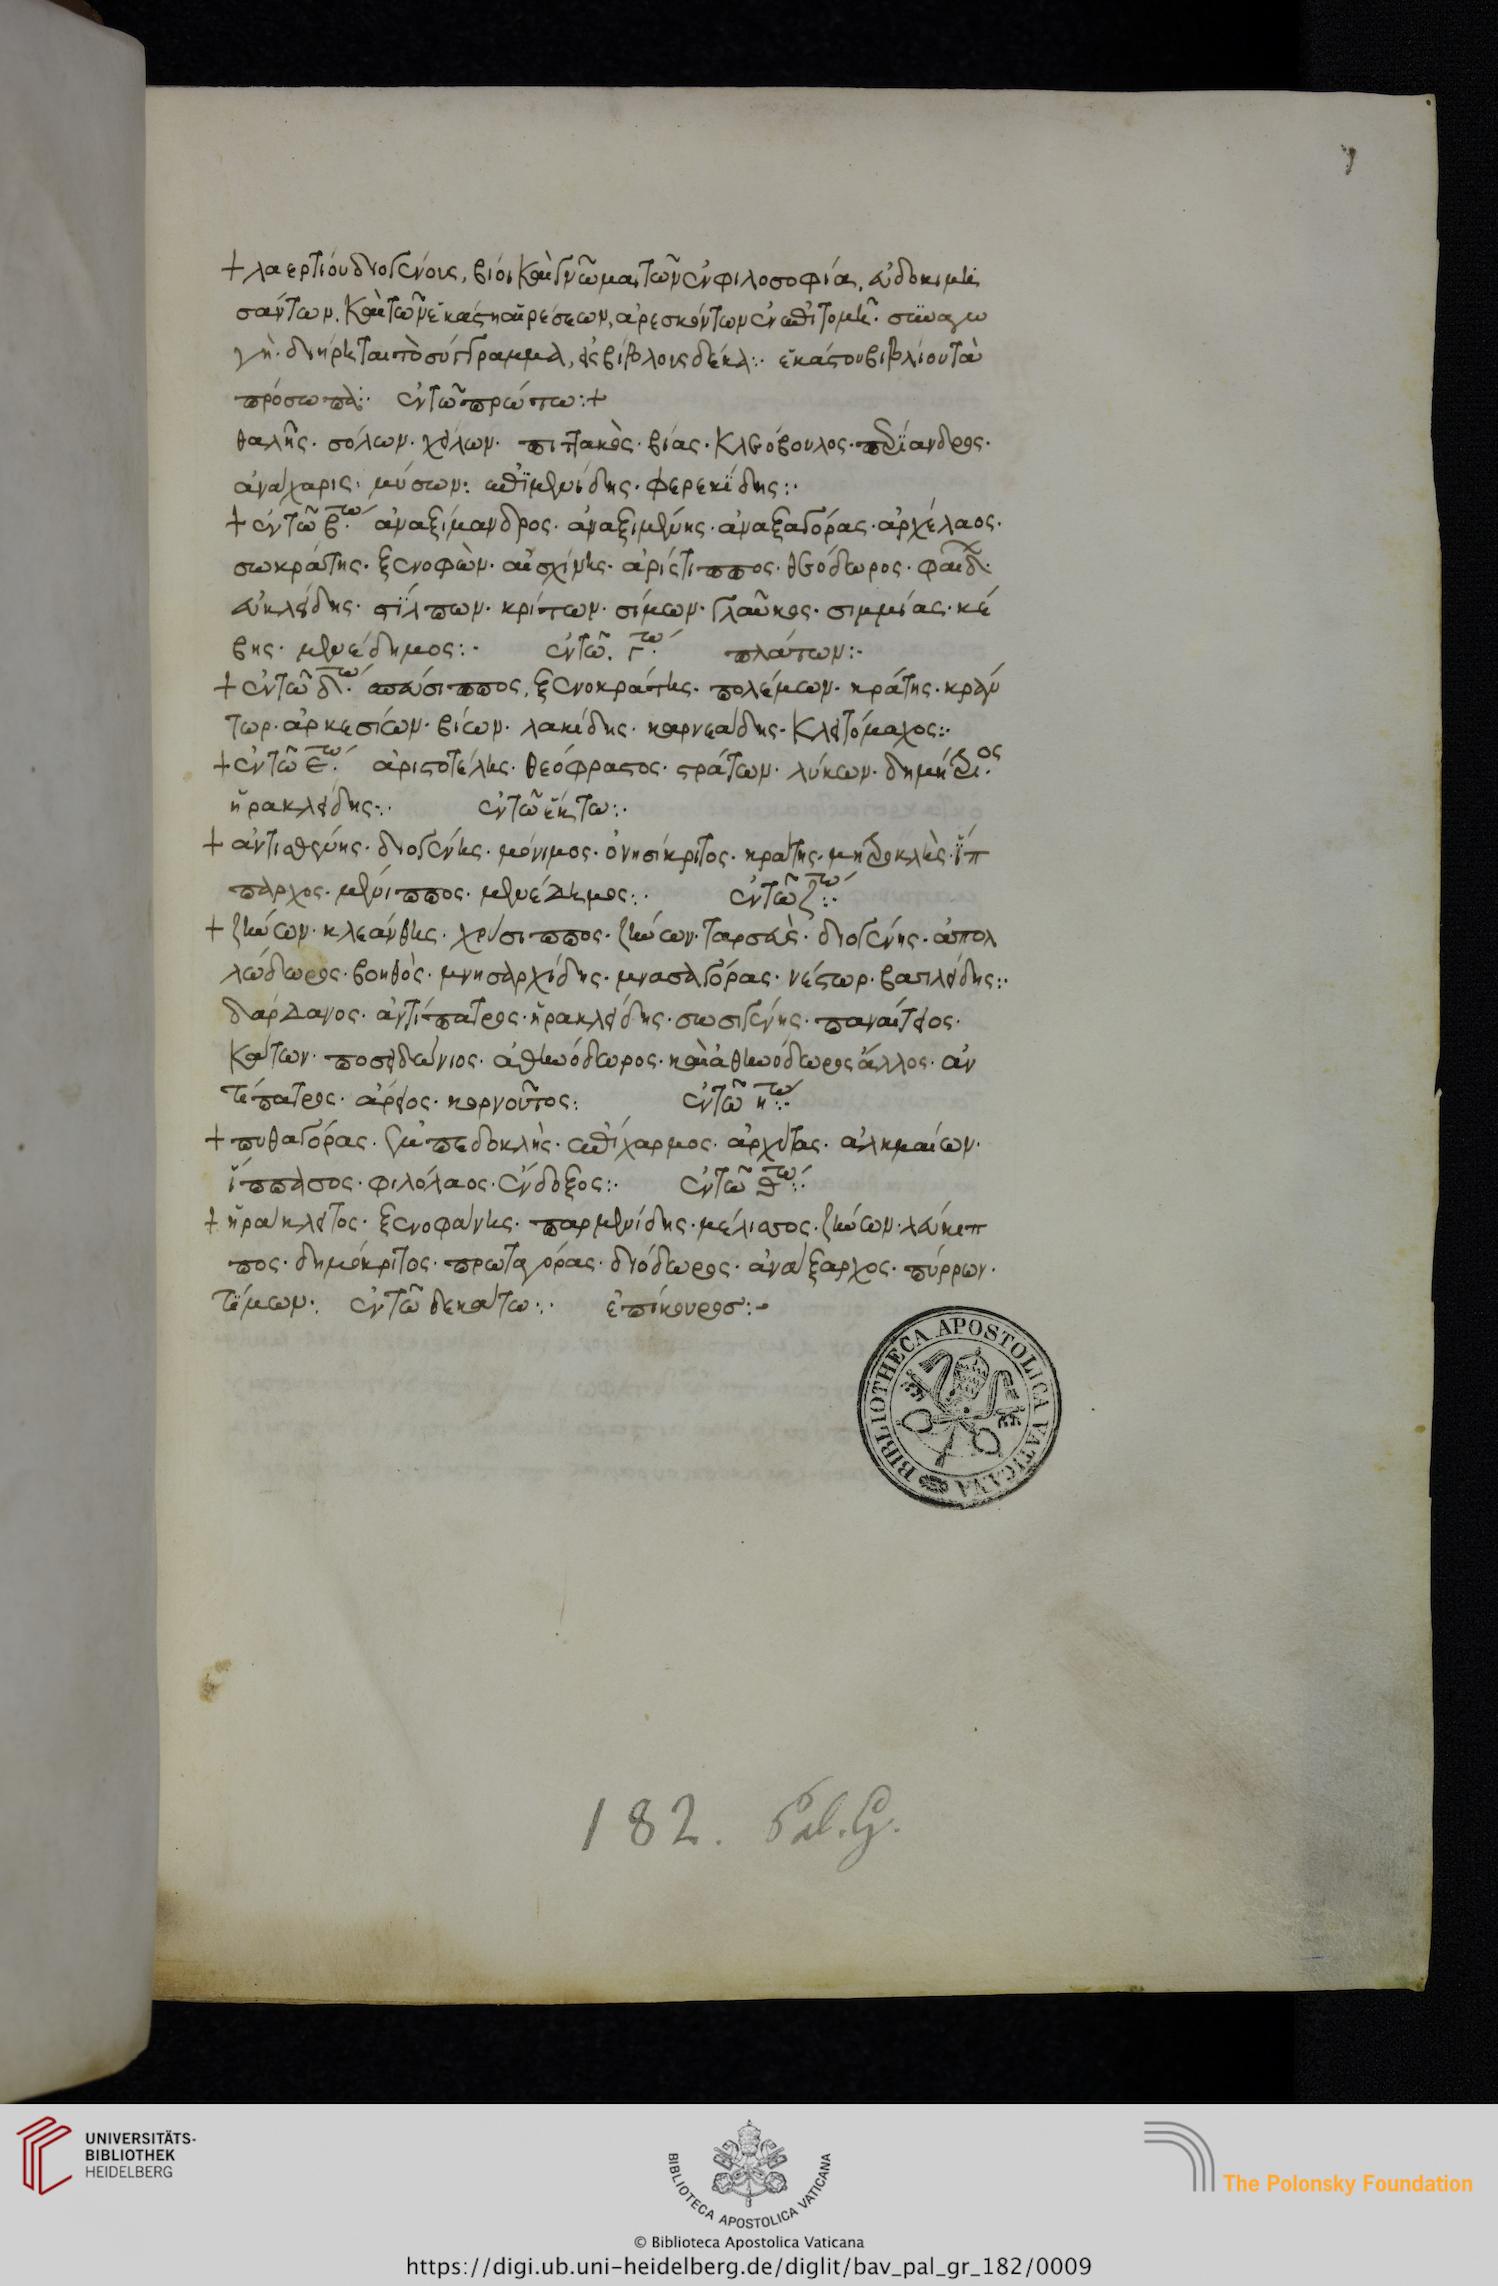 + λαερτίου διογένους, βίοι καὶ γνῶμαι τῶν ἐν φιλοσοφία, εὐδοκιμη
σάντων. καὶ τῶν ἑκάστη αἱρέσεων, ἀρεσκόντων ἐν ἐπιτομῆ. συναγω
γή. διήρηται τὸ σύγγραμμα, εἰς βίβλους δέκα:· ἑκάστου βιβλίου τὰ
πρόσωπα:· ἐν τῶ πρώτω:+
θαλῆς· σόλων· χείλων· πιττακὸς· βίας· κλεόβουλος· περίανδρος·
ἀνάχαρις· μύσων: ἐπιμενίδης· φερεκύδης:·
+ ἐν τῶ β.τω ἀναξίμανδρος· ἀναξιμένης· ἀναξαγόρας· ἀρχέλαος·
σωκράτης· ξενοφῶν· αἰσχίνης· ἀρίστιππος· θεόδωρος· φαίδ
εὐκλείδης· στίλπων· κρίτων· σίμων· γλαῦκος· σιμμίας· κέ
βης· μενέδημος:· ἐν τῶ. γ.τω πλάτων:·
+ ἐν τῶ δ.τω σπεύσιππος, ξενοκράτης· πολέμων· κράτης· κράν
τωρ· ἀρκεσίων· βίων· λακύδης· καρνεάδης· κλειτόμαχος:·
+ ἐν τῶ ε.τω ἀριστοτέλης· θεόφραστος· στράτων· λύκων· δημήτριος·
ἡρακλείδης:· ἐν τῶ ἕκτω:·
+ ἀντισθένης· διογένης· μόνιμος· ὀνησίκριτος· κράτης· μητροκλὴς· ἵπ
παρχος· μένιππος· μενέδημος:· ἐν τῶ ζ.τω:·
+ ζήνων· κλεάνθης· χρύσιππος· ζήνων· ταρσεὺς· διογένης· ἀπολ
λώδωρος· βοηθὸς· μνησαρχίδης· μνασαγόρας· νέστωρ· βασιλείδης:·
δάρδανος· ἀντίπατρος· ἡρακλείδης· σωσιγένης· παναίτειος·
κάτων· ποσειδώνιος· ἀθηνόδωρος· καὶ ἀθηνόδωρος ἄλλος· ἀν
τίπατρος· ἄρειος· κορνοῦτος: ἐν τῶ η.τω:·
+ πυθαγόρας· ἐμπεδοκλῆς· ἐπίχαρμος· ἀρχύτας· ἀλκμαίων·
ἵππασος· φιλόλαος· εὔδοξος:· ἐν τῶ θ.τω:·
+ ἡράκλειτος· ξενοφάνης· παρμενίδης· μέλισσος· ζήνων· λεύκιπ
πος· δημόκριτος· πρωταγόρας· διόδωρος· ἀνάξαρχος· πύρρων·
τίμων·. ἐν τῶ δεκάτω:· ἐπίκουρος:-
BIBLIOTHECA APOSTOLICA VATICANA
182. Pal. G.
UNIVERSITÄTS-
BIBLIOTHEK
HEIDELBERG
BIBLIOTECA APOSTOLICA VATICANA
The Polonsky Foundation
© Biblioteca Apostolica Vaticana
https://digi.ub.uni-heidelberg.de/diglit/bav_pal_gr_182/0009